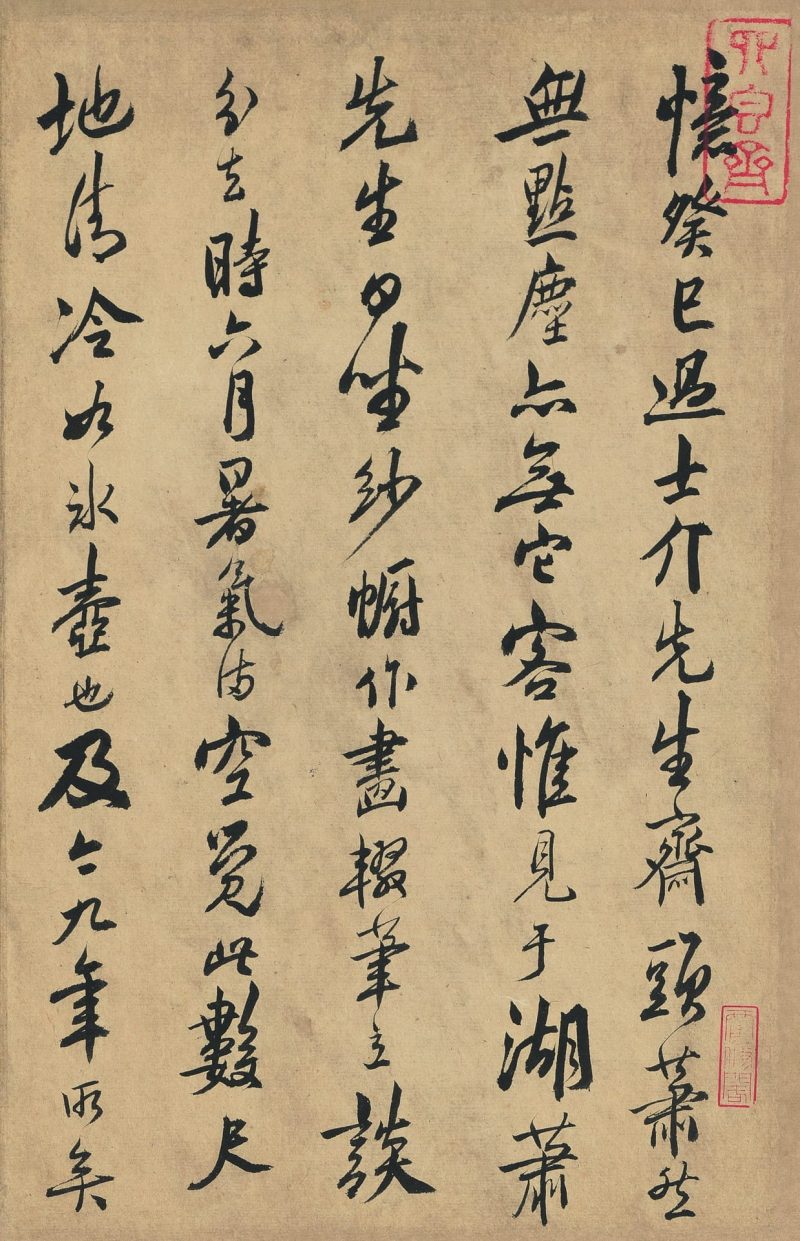 憶癸巳過士介先生齋頭蕭然
無點塵亦無它客惟見于湖蕭
先生日坐紗㡡作畫輟筆立談
分去時六月暑氣滿空覺此數尺
地清冷如冰壺也及今九年所矣